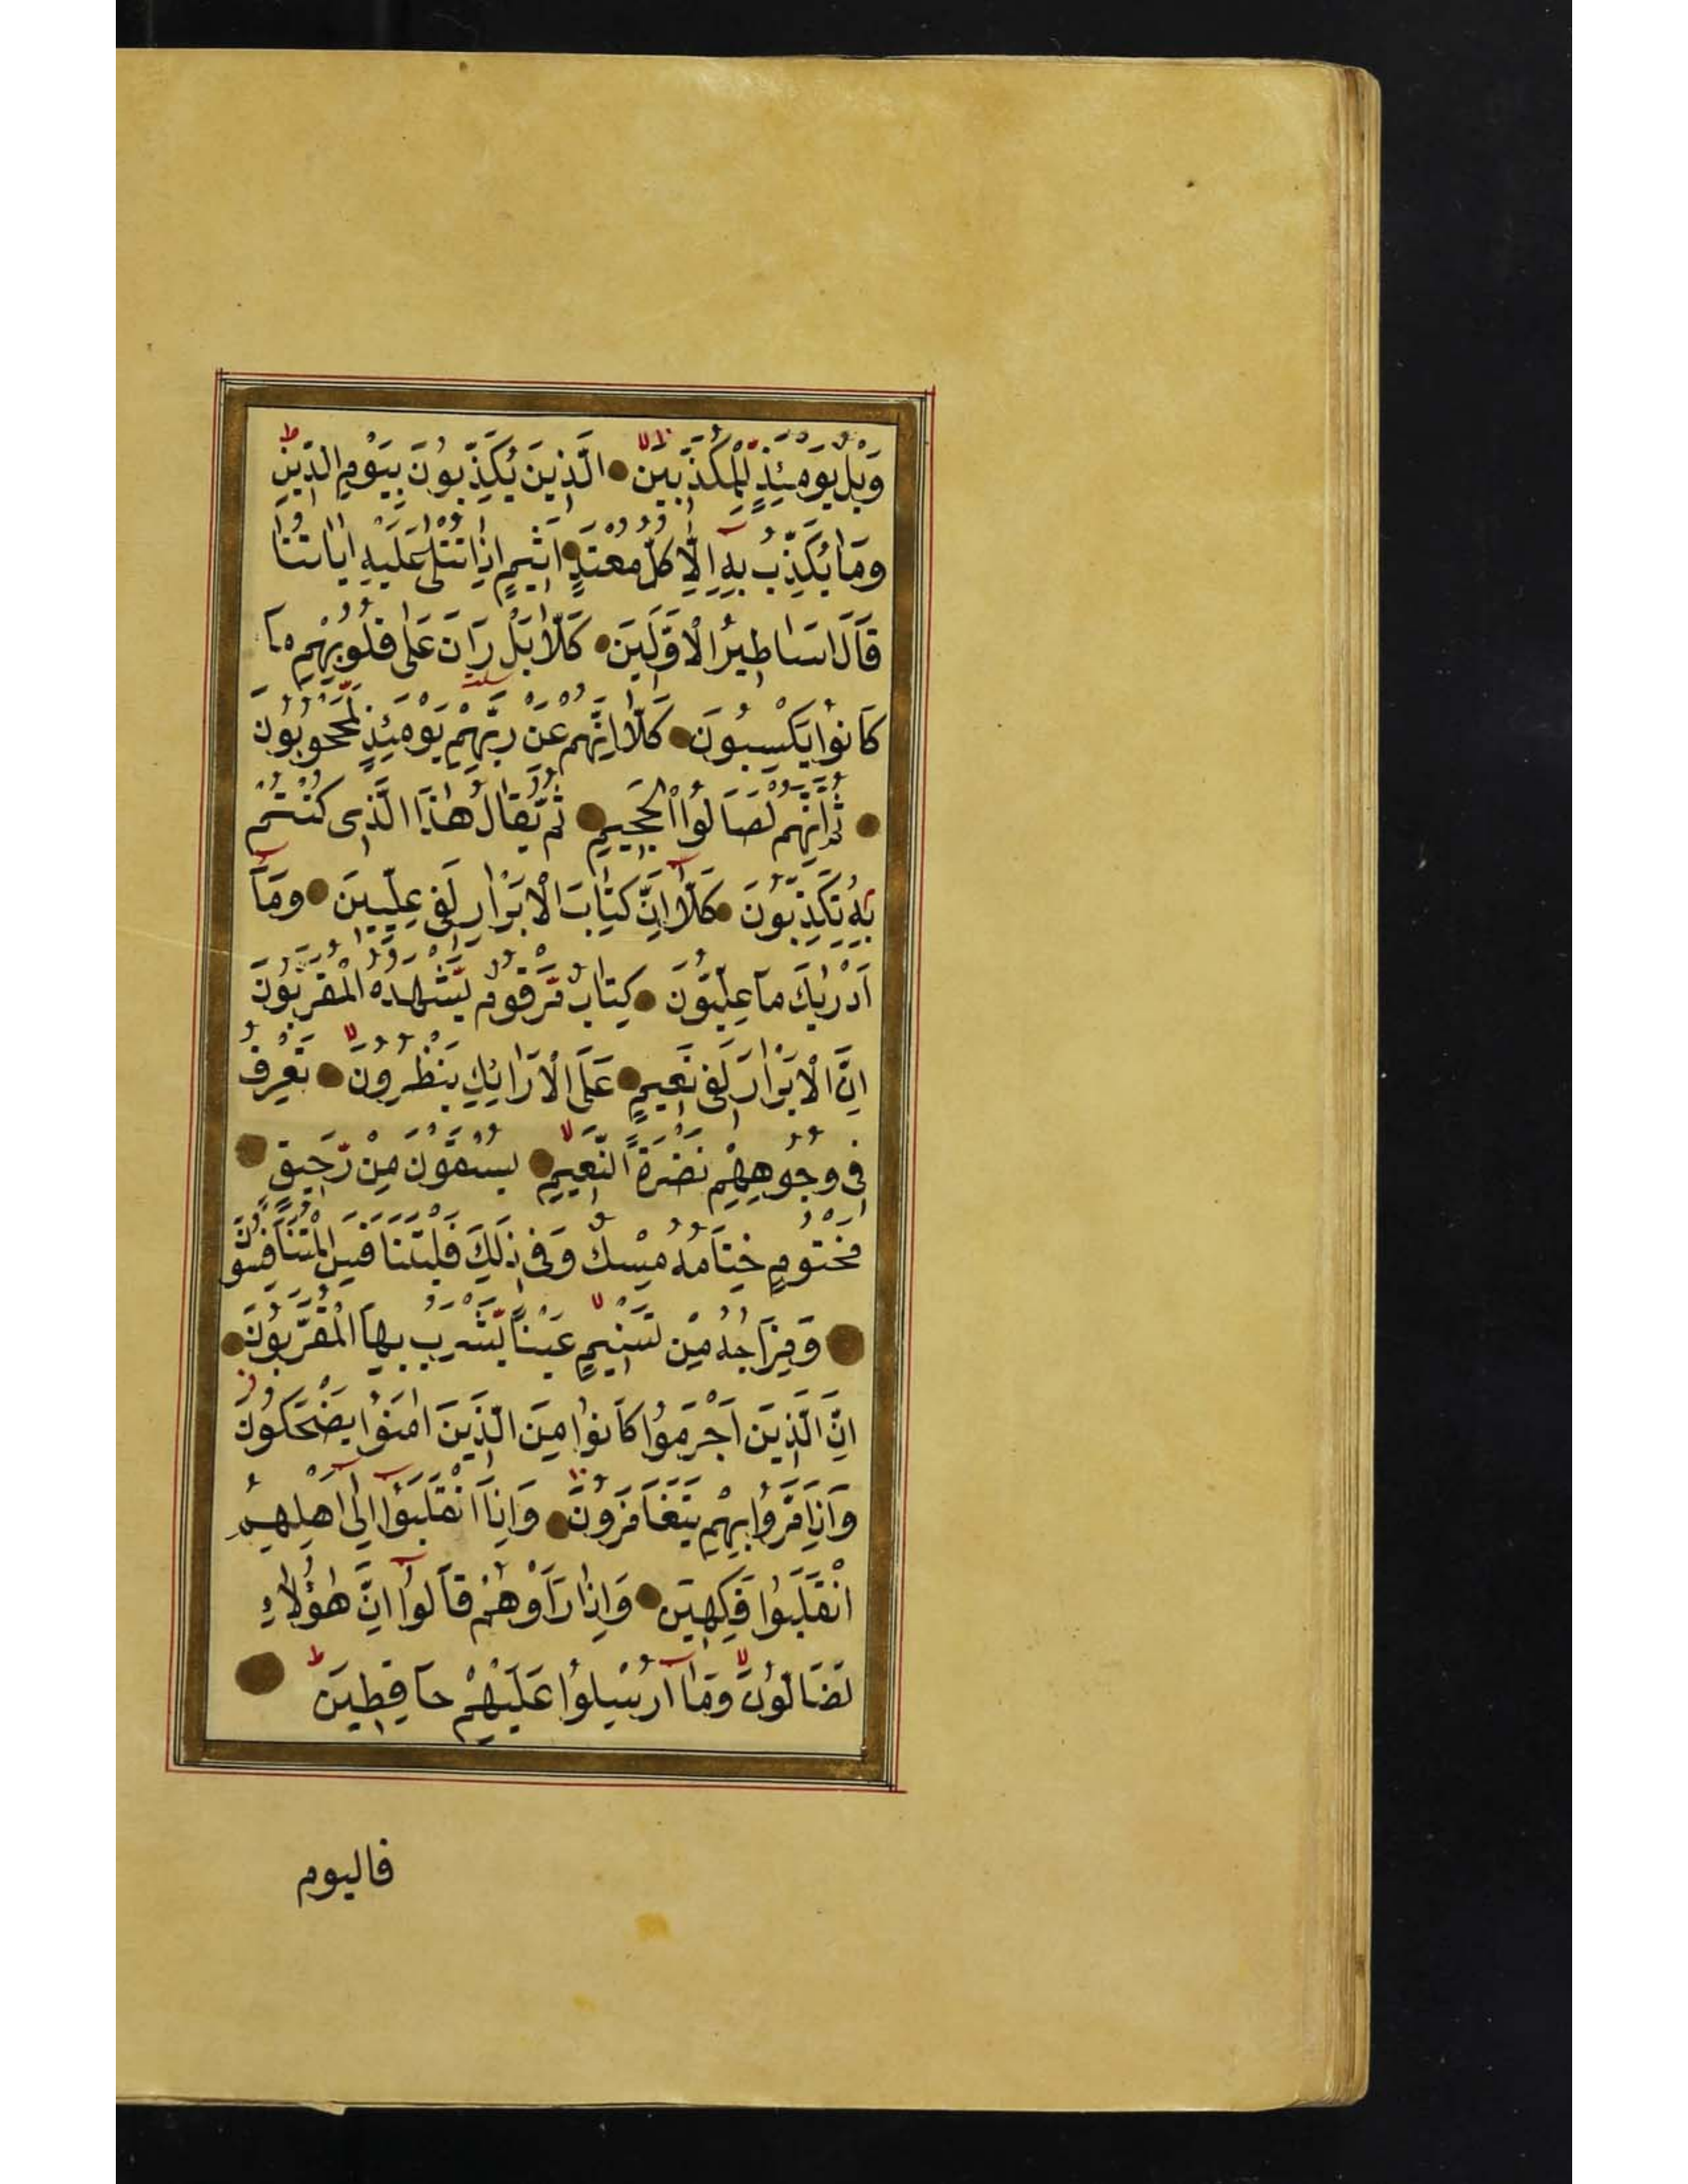 وَيْلٌ يَوْمَئِذٍ لِلْمُكَذِّبِينَ الَّذِينَ يُكَذِّبُونَ بِيَوْمِ الدِّينِ
وَمَا يُكَذِّبُ بِهِ اِلَّا كُلُّ مُعْتَدٍ اَثِيمٍ اِذَا تُتْلٰى عَلَيْهِ اٰيَاتُنَا
قَالَ اَسَاطِيرُ الْاَوَّلِينَ كَلَّا بَلْ رَانَ عَلٰى قُلُوبِهِمْ مَا
كَانُوا يَكْسِبُونَ كَلَّا اِنَّهُمْ عَنْ رَبِّهِمْ يَوْمَئِذٍ لَمَحْجُوبُونَ
ثُمَّ اِنَّهُمْ لَصَالُوا الْجَحِيمِ ثُمَّ يُقَالُ هٰذَا الَّذِى كُنْتُمْ
بِهِ تُكَذِّبُونَ كَلَّا اِنَّ كِتَابَ الْاَبْرَارِ لَفِى عِلِّيِّينَ وَمَآ
اَدْرٰيكَ مَا عِلِّيُّونَ كِتَابٌ مَرْقُومٌ يَشْهَدُهُ الْمُقَرَّبُونَ
اِنَّ الْاَبْرَارَ لَفِى نَعِيمٍ عَلَى الْاَرَائِكِ يَنْظُرُونَ تَعْرِفُ
فِى وُجُوهِهِمْ نَضْرَةَ النَّعِيمِ يُسْقَوْنَ مِنْ رَحِيقٍ
مَخْتُومٍ خِتَامُهُ مِسْكٌ وَفِى ذٰلِكَ فَلْيَتَنَافَسِ الْمُتَنَافِسُونَ
وَمِزَاجُهُ مِنْ تَسْنِيمٍ عَيْنًا يَشْرَبُ بِهَا الْمُقَرَّبُونَ
اِنَّ الَّذِينَ اَجْرَمُوا كَانُوا مِنَ الَّذِينَ اٰمَنُوا يَضْحَكُونَ
وَاِذَا مَرُّوا بِهِمْ يَتَغَامَزُونَ وَاِذَا انْقَلَبُوا اِلٰى اَهْلِهِمُ
انْقَلَبُوا فَكِهِينَ وَاِذَا رَاَوْهُمْ قَالُوا اِنَّ هٰؤُلَاءِ
لَضَالُّونَ وَمَا اُرْسِلُوا عَلَيْهِمْ حَافِظِينَ
فاليوم